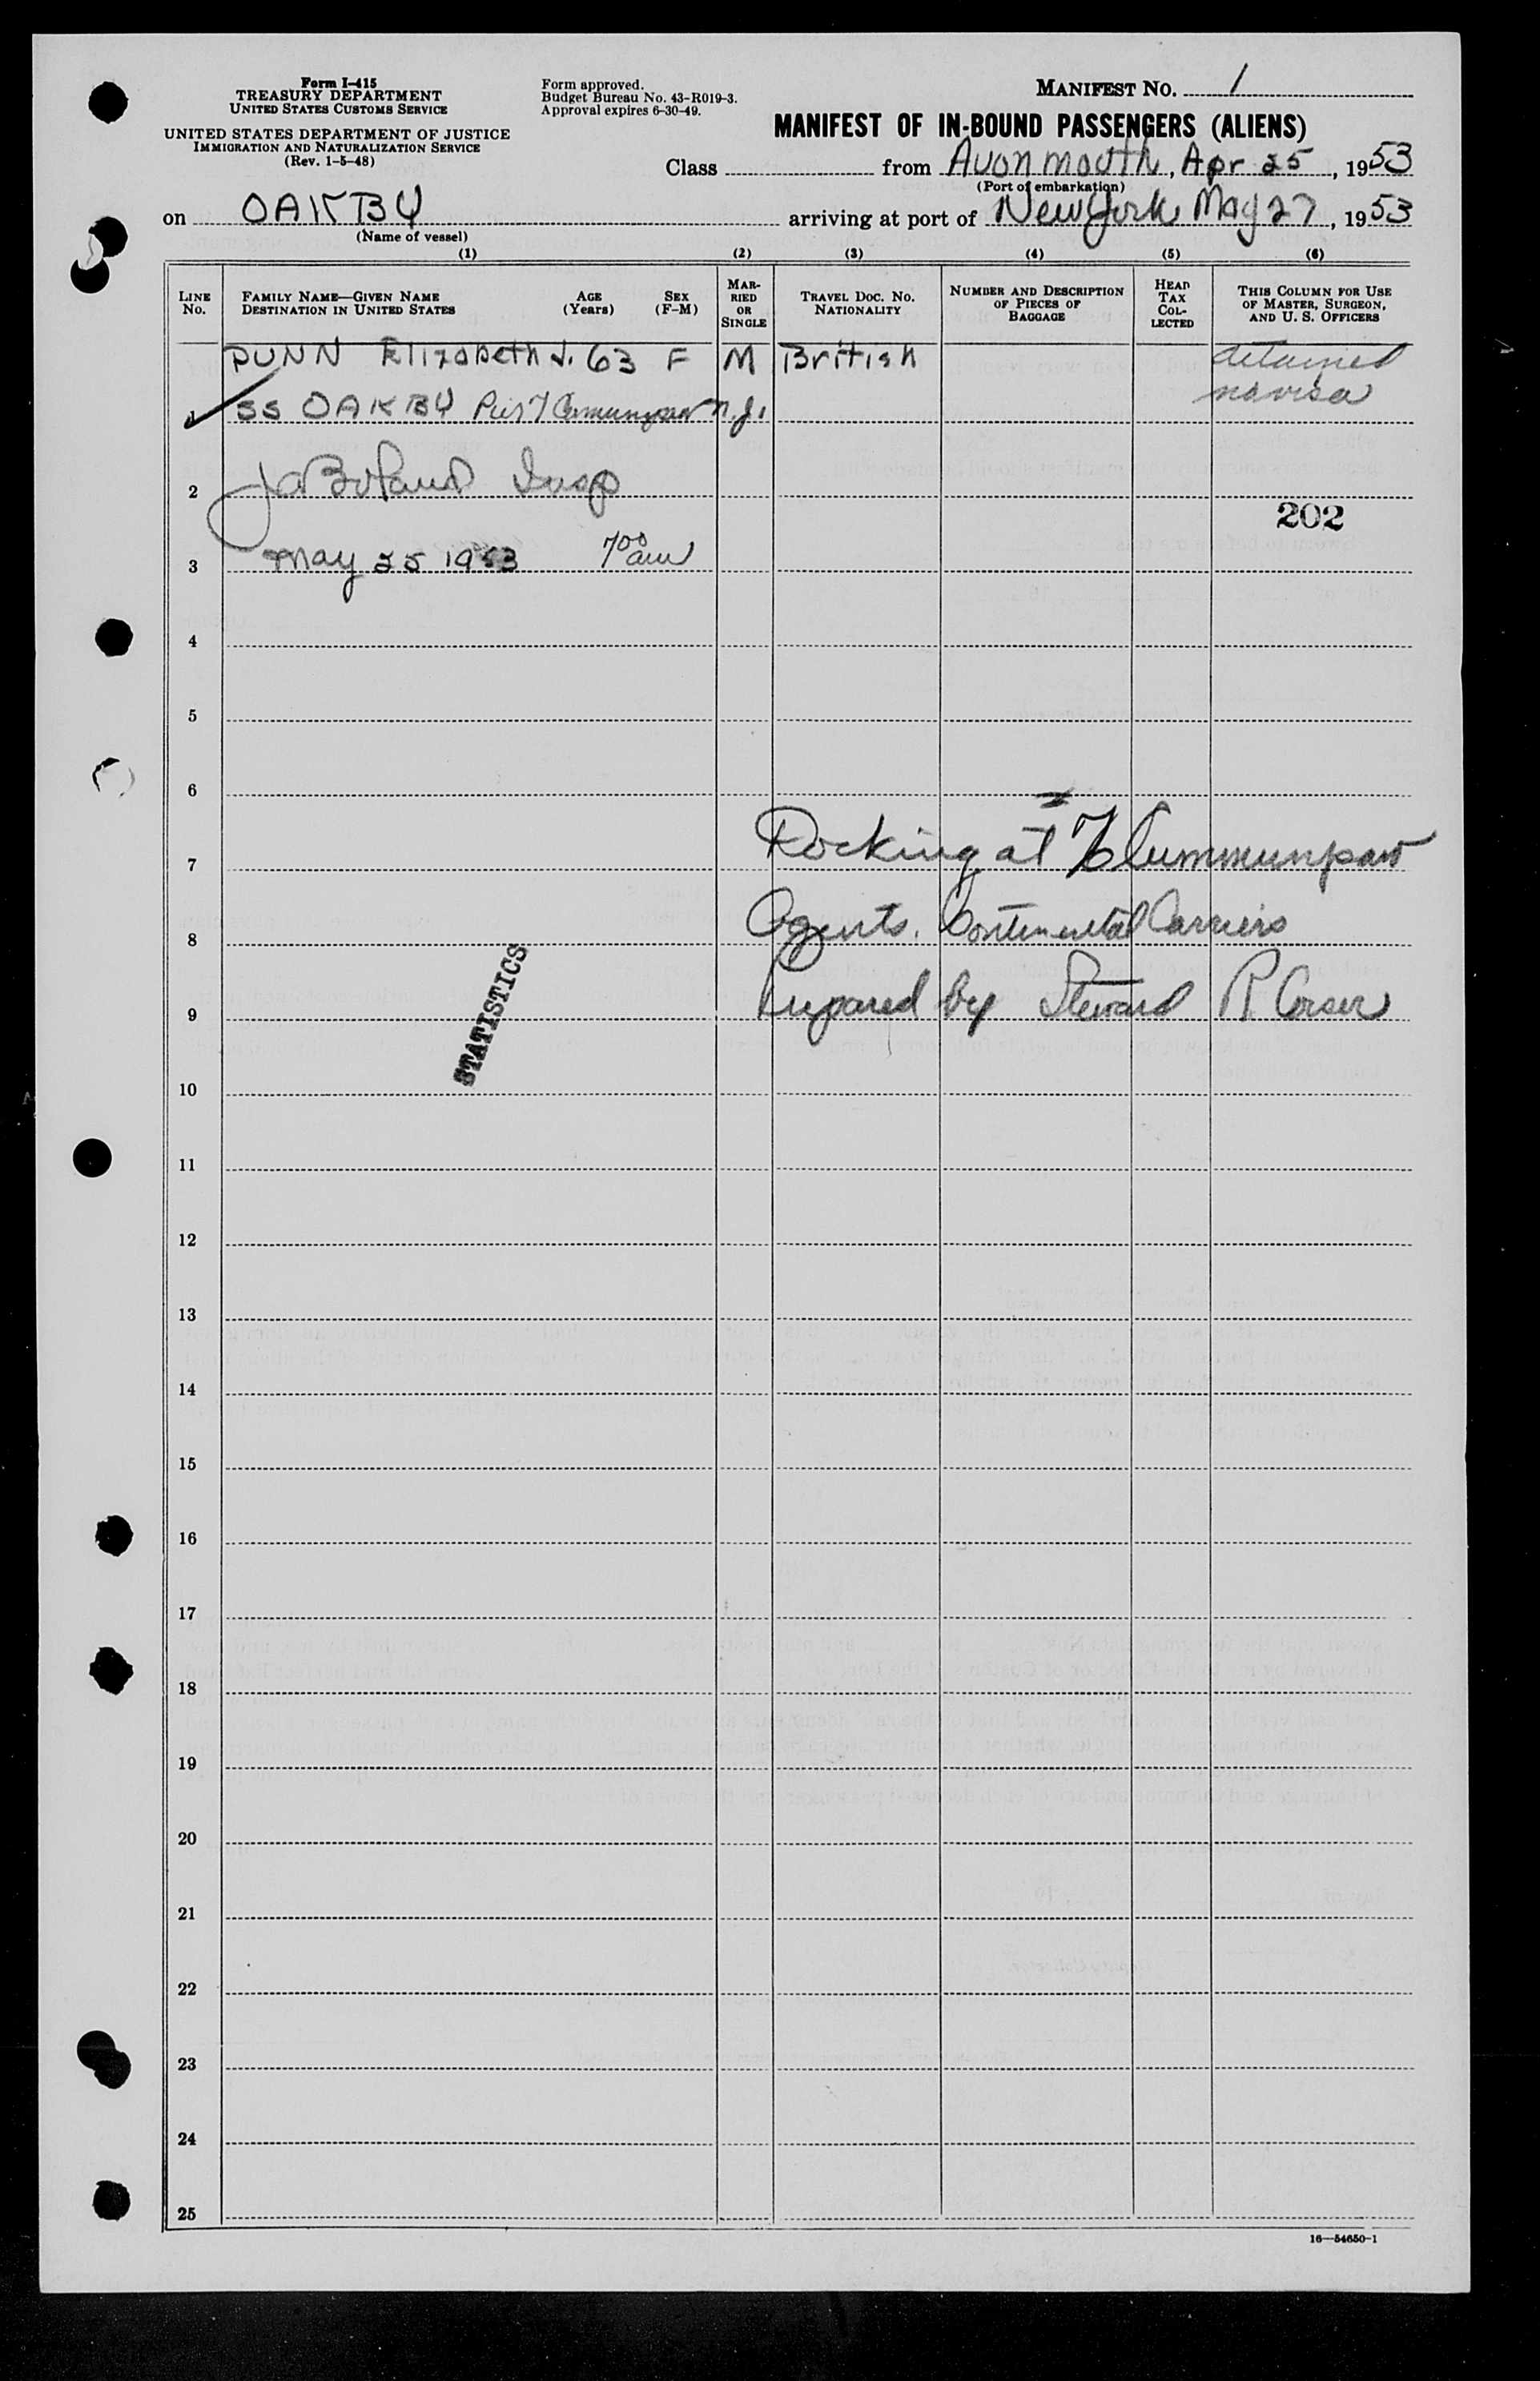 Form I-415
TREASURY DEPARTMENT
UNITED STATES CUSTOMS SERVICE
UNITED STATES DEPARTMENT OF JUSTICE
IMMIGRATION AND NATURALIZATION SERVICE
(Rev. 1-5-48)
Form approved.
Budget Bureau No. 43-R019-3.
Approval expires 6-30-49.
MANIFEST NO. 1
MANIFEST OF IN-BOUND PASSENGERS (ALIENS)
Class from Avonmouth, Apr 25, 1953
(Port of embarkation)
on OAKBY arriving at port of New York May 27, 1953
(Name of vessel)
(1) (2) (3) (4) (5) (6)
LINE No.
FAMILY NAME—GIVEN NAME
DESTINATION IN UNITED STATES
AGE (Years)
SEX (F-M)
MARRIED OR SINGLE
TRAVEL DOC. NO.
NATIONALITY
NUMBER AND DESCRIPTION OF PIECES OF BAGGAGE
HEAD TAX COLLECTED
THIS COLUMN FOR USE OF MASTER, SURGEON, AND U. S. OFFICERS
DUNN Elizabeth J. 63 F M British detained
no visa
1 SS OAKBY Pier 7 n.J.
2 Insp
202
3 May 25 1953 7 00 am
4
5
6
7 Docking at 7
8 Agents. Continental Carriers
9 Prepared by Steward R
STATISTICS
10
11
12
13
14
15
16
17
18
19
20
21
22
23
24
25
16—54650-1